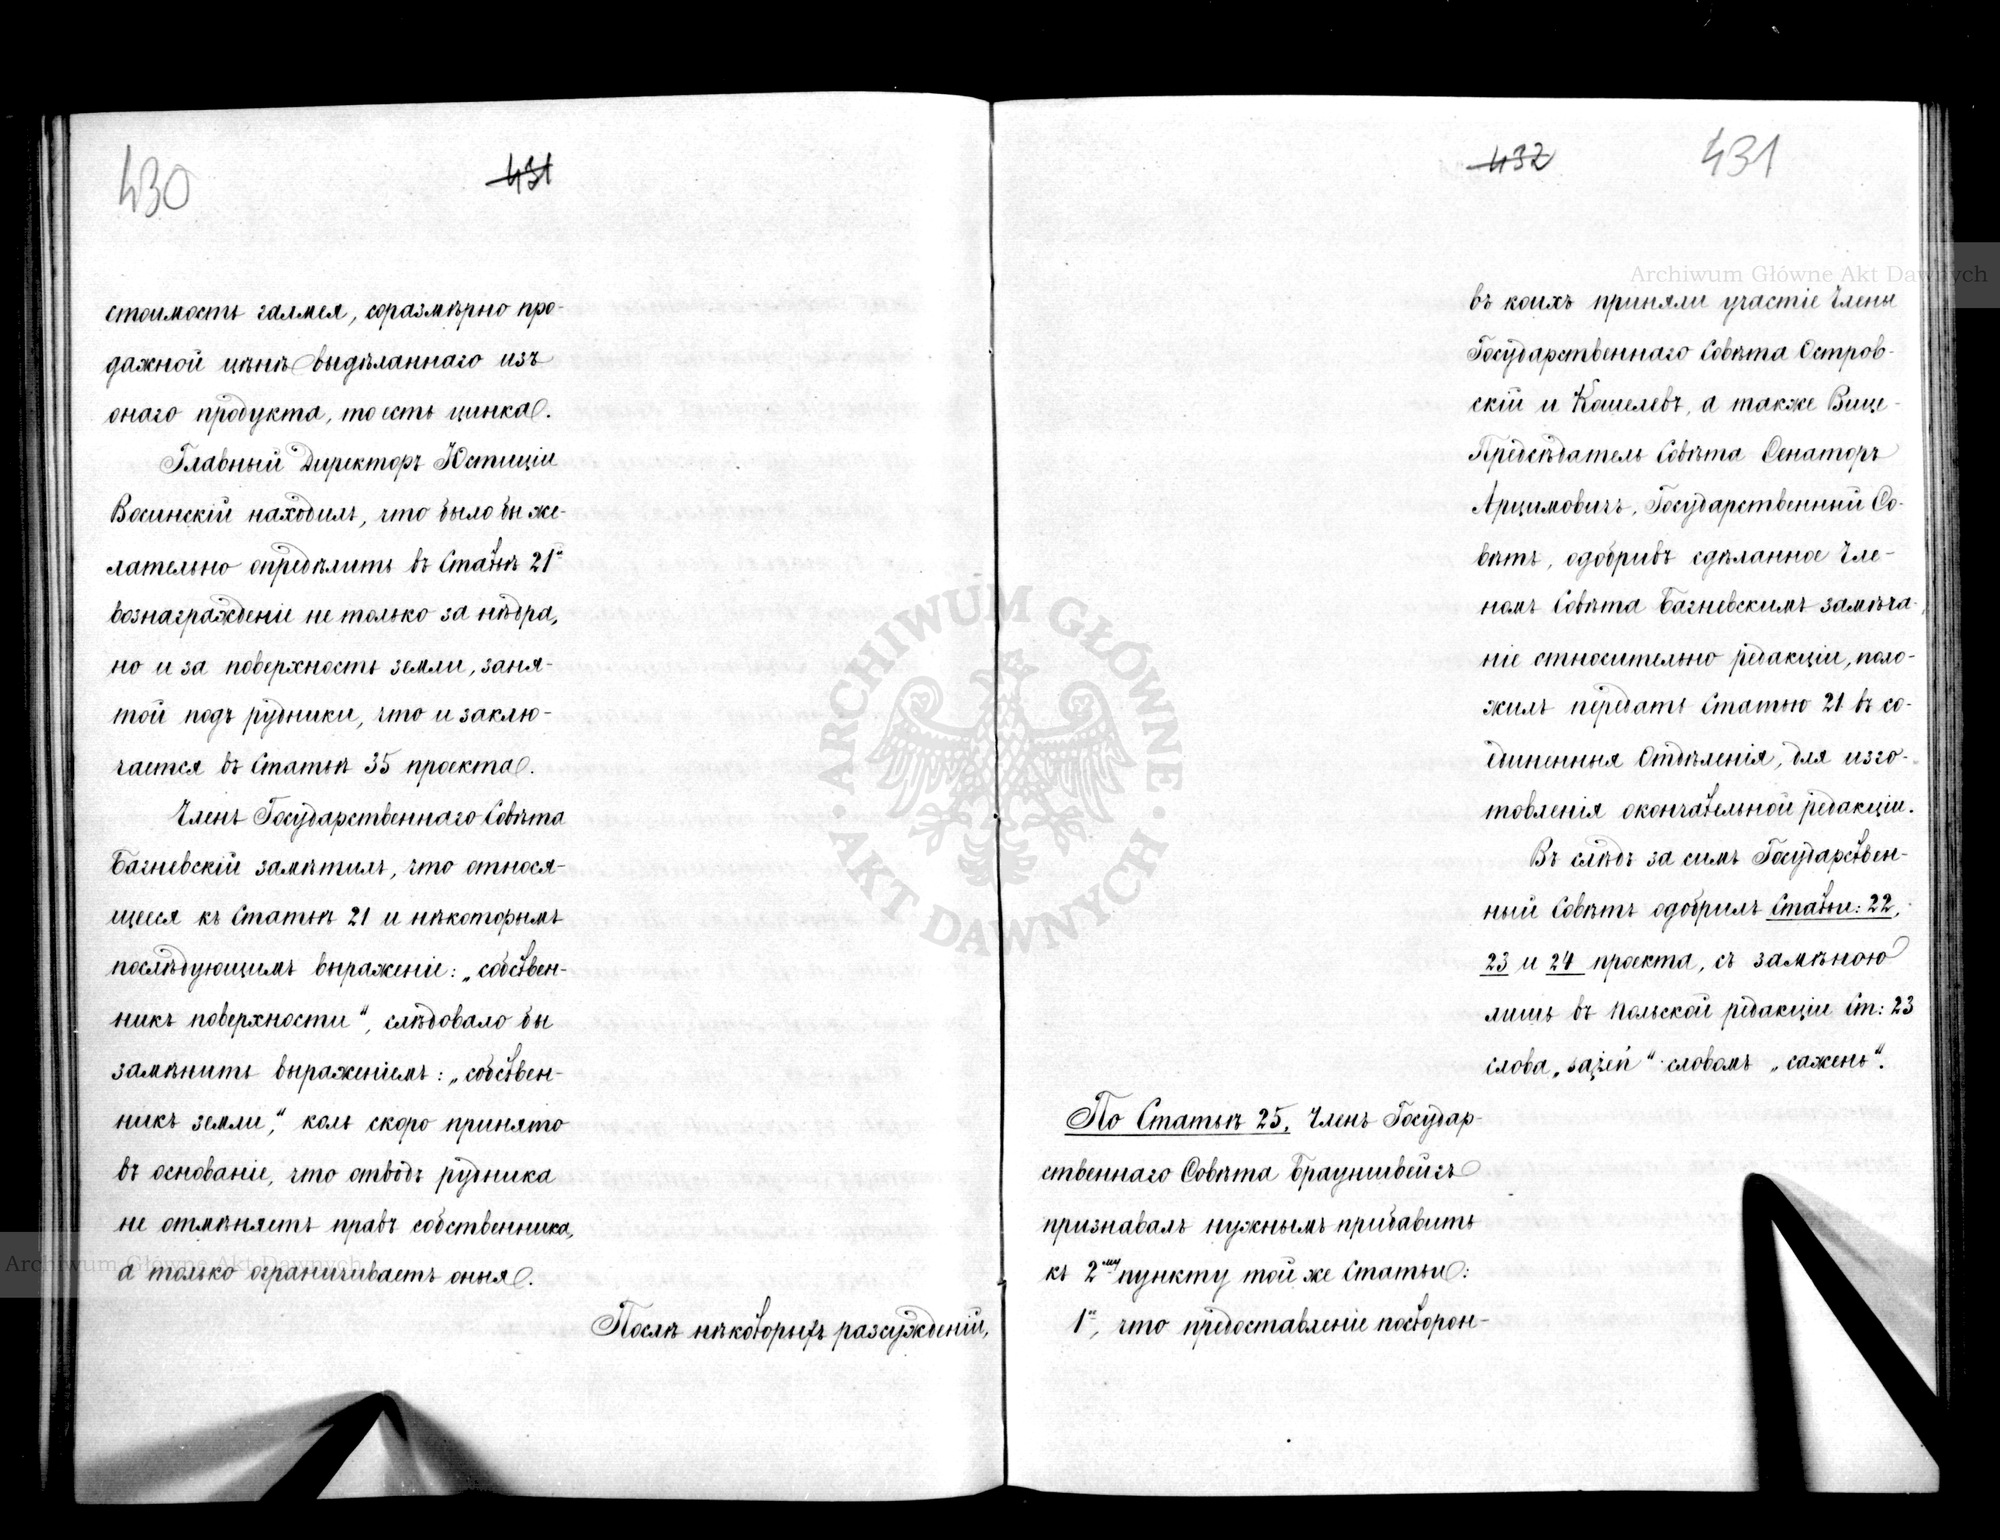 430
431
стоимость галмея, соразмѣрно про-
дажной цѣнѣ выдѣланнаго изъ
онаго продукта, то есть цинка.
Главный Директоръ Юстиціи
Восинскій находилъ, что было бы же-
лательно опредѣлить въ Статьѣ 21й
вознагражденіе не только за нѣдра,
но и за поверхность земли, заня-
той подъ рудники, что и заклю-
чается въ Статьѣ 35 проекта.
Членъ Государственнаго Совѣта
Багневскій замѣтилъ, что относя-
щееся къ Статьѣ 21 и нѣкоторымъ
послѣдующимъ выраженіе: „собствен-
никъ поверхности“, слѣдовало бы
замѣнить выраженіемъ: „собствен-
никъ земли,“ коль скоро принято
въ основаніе, что отводъ рудника
не отмѣняетъ правъ собственника,
а только ограничиваетъ оныя.
Послѣ нѣкоторыхъ разсужденій,
432
431
въ коихъ приняли участіе Члены
Государственнаго Совѣта Островскій
скій и Кошелевъ, а также Вице-
Предсѣдатель Совѣта Сенаторъ
Арцимовичъ, Государственный Со-
вѣтъ, одобривъ сдѣланное Чле-
номъ Совѣта Багневскимъ замѣча-
ніе относительно редакціи, поло-
жилъ передать Статью 21 въ со-
единенныя Отдѣленія, для изго-
товленія окончательной редакціи.
Въ слѣдъ за симъ Государствен-
ный Совѣтъ одобрилъ Статьи: 22,
23 и 24 проекта, съ замѣною
лишь въ Польской редакціи Ст: 23
слова „sążeń“ словомъ „сажень“.
По Статьѣ 25, Членъ Государ-
ственнаго Совѣта Брауншвейгъ
признавалъ нужнымъ прибавить
къ 2му пункту той же Статьи:
1е, что предоставленіе посторон-
Archiwum Główne Akt Dawnych
ARCHIWUM GŁÓWNE AKT DAWNYCH
Archiwum Główne Akt Dawnych